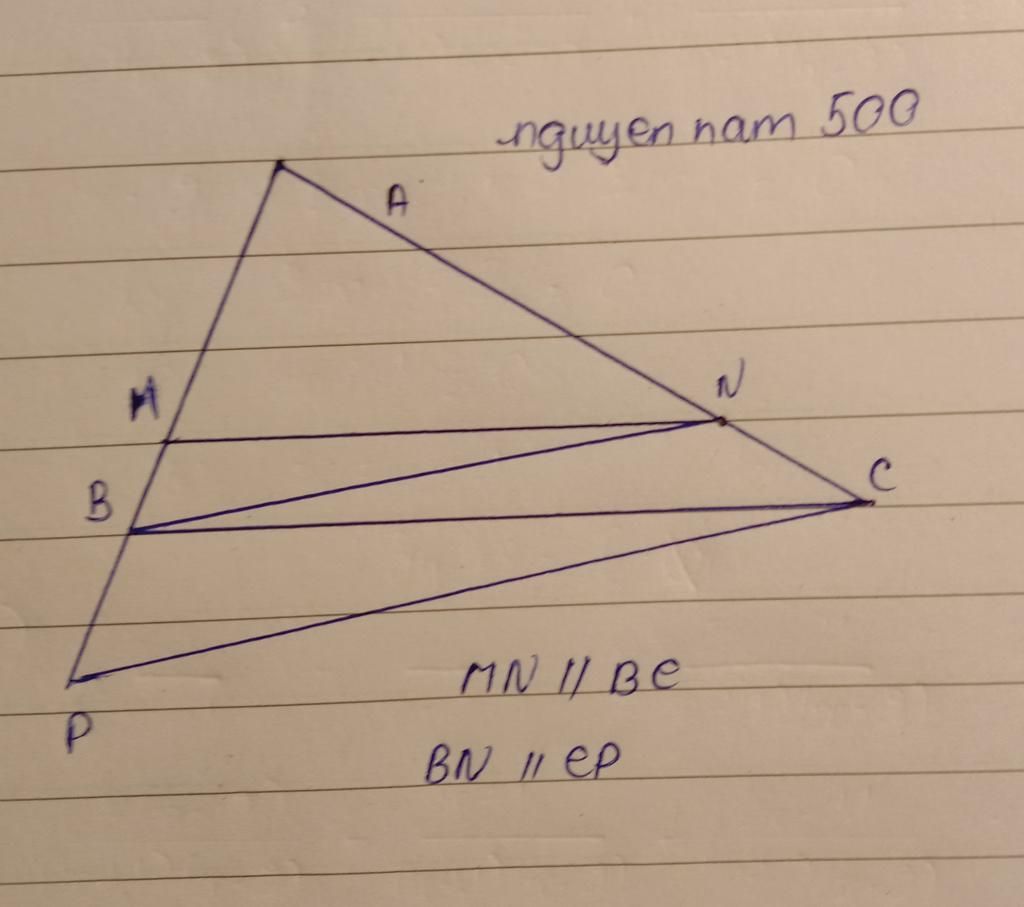 nguyen nam 500
A
N
M
C
B
MN // BC
P
BN // CP